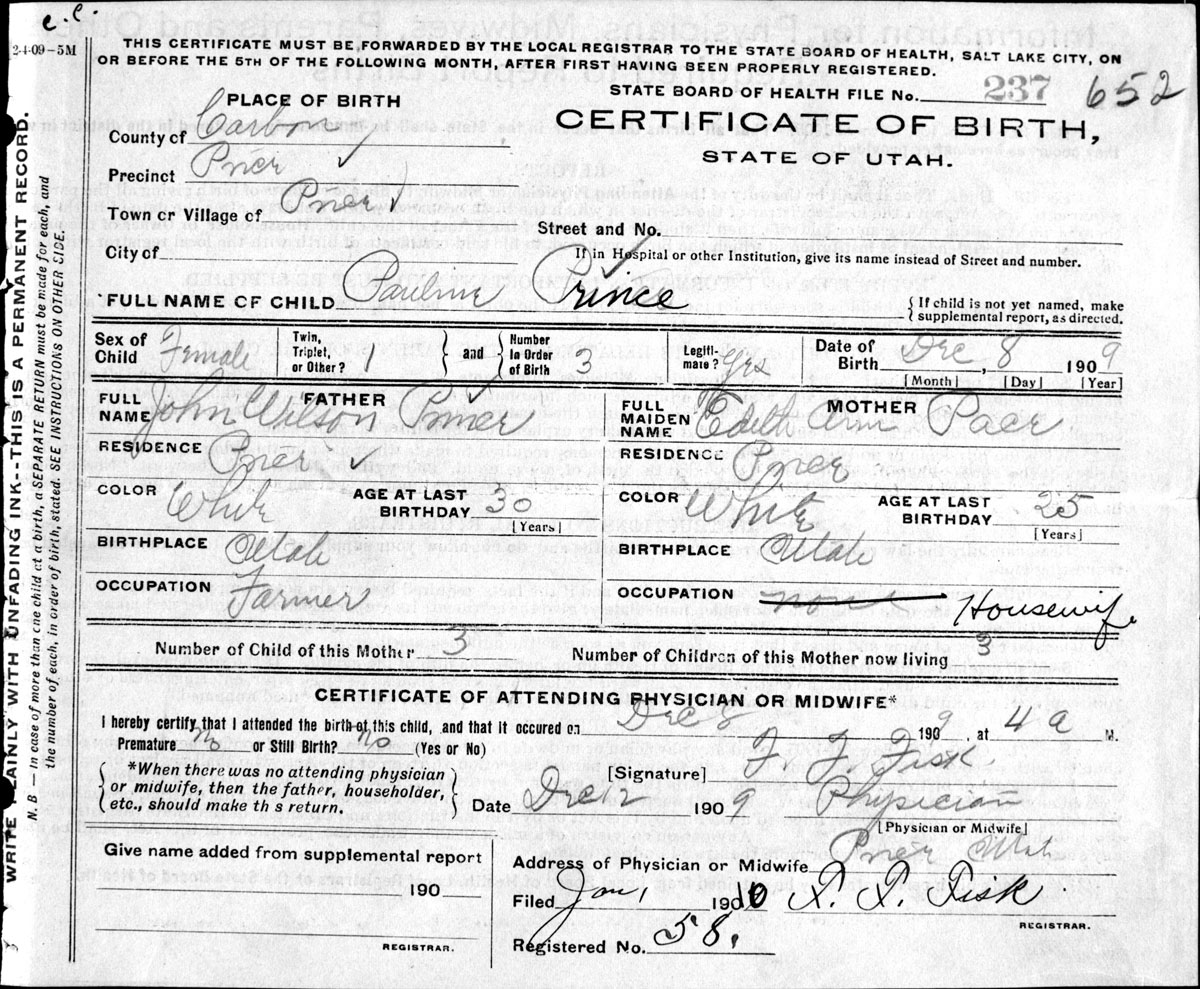 e.c.
2-4-09-5M
THIS CERTIFICATE MUST BE FORWARDED BY THE LOCAL REGISTRAR TO THE STATE BOARD OF HEALTH, SALT LAKE CITY, ON
OR BEFORE THE 5TH OF THE FOLLOWING MONTH, AFTER FIRST HAVING BEEN PROPERLY REGISTERED.
STATE BOARD OF HEALTH FILE No. 237 652
PLACE OF BIRTH
CERTIFICATE OF BIRTH,
STATE OF UTAH.
County of Carbon
Precinct Price ✓
Town or Village of Price ✓
Street and No.
City of
If in Hospital or other Institution, give its name instead of Street and number.
FULL NAME OF CHILD Pauline Prince
{ If child is not yet named, make
supplemental report, as directed.
Sex of Child Female Twin, Triplet, or Other? 1 } and { Number in Order of Birth 3 Legiti-mate? Yes Date of Birth Dec, 8 1909
[Month] [Day] [Year]
FATHER
FULL NAME John Wilson
MOTHER
FULL MAIDEN NAME Edith Ann Pace
RESIDENCE Price ✓
RESIDENCE Price
COLOR White AGE AT LAST BIRTHDAY 30 [Years]
COLOR White AGE AT LAST BIRTHDAY 25 [Years]
BIRTHPLACE Utah
BIRTHPLACE Utah
OCCUPATION Farmer
OCCUPATION none Housewife
Number of Child of this Mother 3 Number of Children of this Mother now living 3
CERTIFICATE OF ATTENDING PHYSICIAN OR MIDWIFE*
I hereby certify that I attended the birth of this child, and that it occured on Dec 8 1909, at 4 a M.
Premature No or Still Birth? No (Yes or No)
{ *When there was no attending physician
or midwife, then the father, householder,
etc., should make this return. }
[Signature] F. F. Fisk
Date Dec 12 1909 Physician
[Physician or Midwife]
Give name added from supplemental report
190
REGISTRAR.
Address of Physician or Midwife Price Utah
Filed Jan, 1910 F. F. Fisk
REGISTRAR.
Registered No. 58.
WRITE PLAINLY WITH UNFADING INK--THIS IS A PERMANENT RECORD.
N. B. — In case of more than one child at a birth, a SEPARATE RETURN must be made for each, and
the number of each, in order of birth, stated. SEE INSTRUCTIONS ON OTHER SIDE.